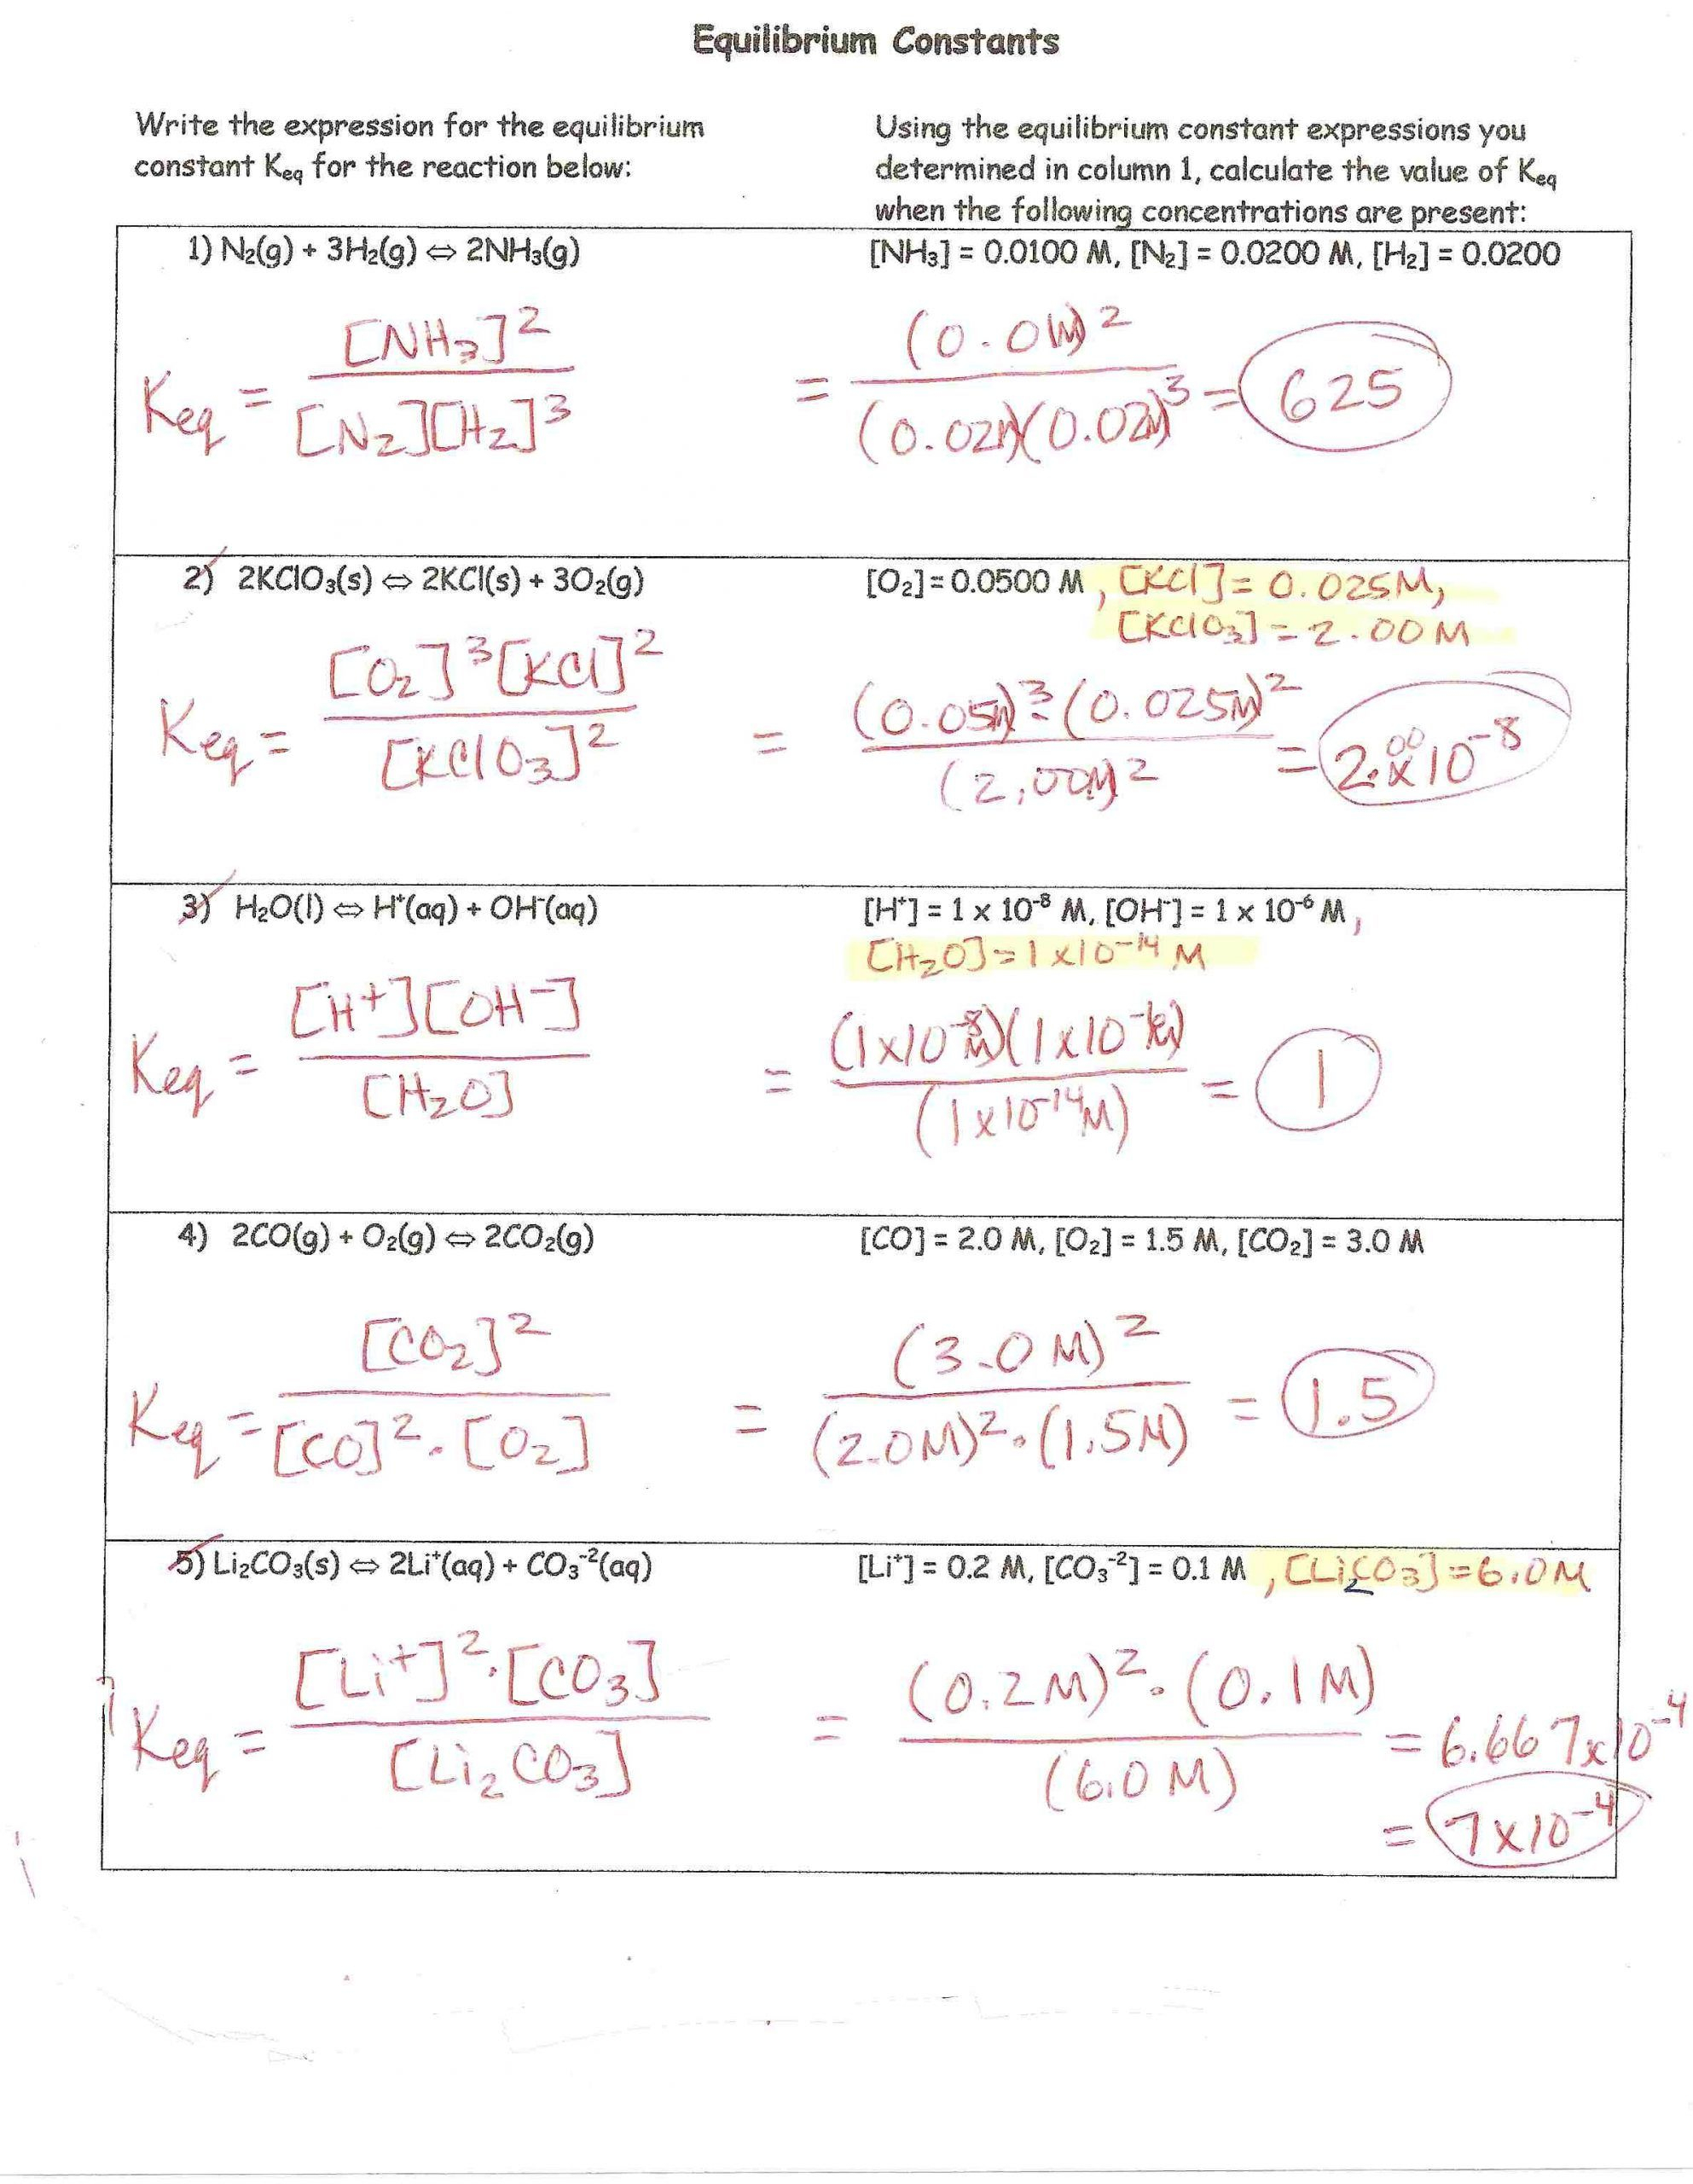 Equilibrium Constants
Write the expression for the equilibrium
constant Keq for the reaction below:
Using the equilibrium constant expressions you
determined in column 1, calculate the value of Keq
when the following concentrations are present:
1) N₂(g) + 3H₂(g) ⇔ 2NH₃(g)
[NH₃] = 0.0100 M, [N₂] = 0.0200 M, [H₂] = 0.0200
Keq = [NH₃]² / [N₂][H₂]³ = (0.01M)² / (0.02M)(0.02M)³ = 625
2) 2KClO₃(s) ⇔ 2KCl(s) + 3O₂(g)
[O₂] = 0.0500 M, [KCl] = 0.025M,
[KClO₃] = 2.00 M
Keq = [O₂]³[KCl]² / [KClO₃]² = (0.05M)³·(0.025M)² / (2.00M)² = 2.00x10⁻⁸
3) H₂O(l) ⇔ H⁺(aq) + OH⁻(aq)
[H⁺] = 1 x 10⁻⁸ M, [OH⁻] = 1 x 10⁻⁶ M,
[H₂O] = 1x10⁻¹⁴ M
Keq = [H⁺][OH⁻] / [H₂O] = (1x10⁻⁸M)(1x10⁻⁶M) / (1x10⁻¹⁴M) = 1
4) 2CO(g) + O₂(g) ⇔ 2CO₂(g)
[CO] = 2.0 M, [O₂] = 1.5 M, [CO₂] = 3.0 M
Keq = [CO₂]² / [CO]²·[O₂] = (3.0 M)² / (2.0M)²·(1.5M) = 1.5
5) Li₂CO₃(s) ⇔ 2Li⁺(aq) + CO₃⁻²(aq)
[Li⁺] = 0.2 M, [CO₃⁻²] = 0.1 M, [Li₂CO₃] = 6.0M
Keq = [Li⁺]²·[CO₃] / [Li₂CO₃] = (0.2M)²·(0.1M) / (6.0 M) = 6.667x10⁻⁴
= 7x10⁻⁴